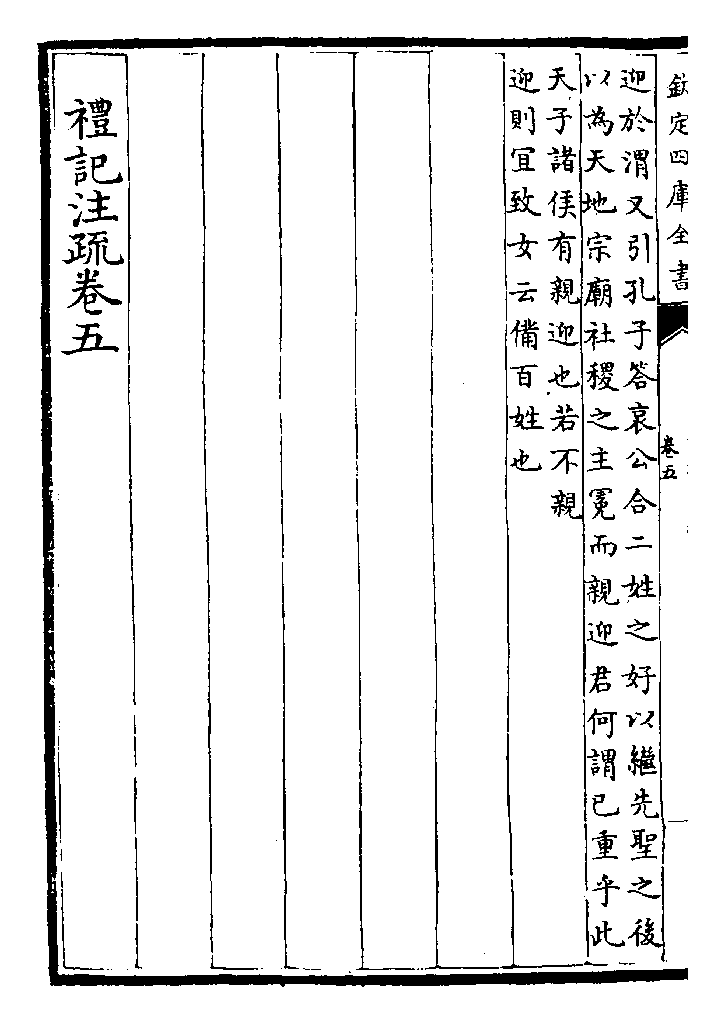 欽定四庫全書
卷五
迎於渭又引孔子答哀公合二姓之好以繼先聖之後
以為天地宗廟社稷之主冕而親迎君何謂已重乎此
天子諸侯有親迎也若不親
迎則宜致女云備百姓也
禮記注疏卷五